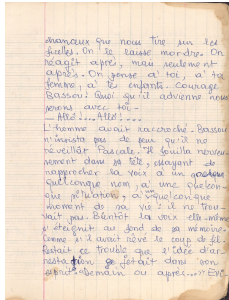 manœuvre que nous tire sur les
ficelles. On le laisse mordre. On
réagit après, mais seulement
après. On pense à toi, à ta
femme, à tes enfants. Courage
Bassou! Quoi qu'il advienne nous
serons avec toi.
— Allô!... Allô!...
L'homme avait raccroché. Bassou
n'insista pas de peur qu'il ne
réveillât Pascale. Il fouilla nerveu-
sement dans sa tête, essayant de
rapprocher la voix à un
quelconque nom, à une quelcon-
que situation, à un quelconque
moment de sa vie: il ne trou-
vait pas. Bientôt la voix elle-même
s'éteignit au fond de sa mémoire
comme s'il avait rêvé le coup de fil.
Restait ce trouble que l'idée d'ar-
restation jetait dans son
esprit. "Demain ou après..." Evi